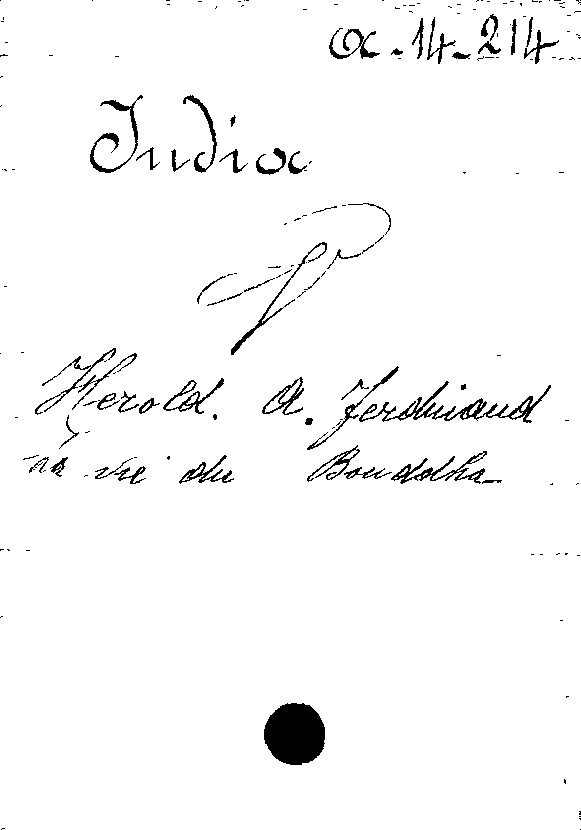 a-14-214
India
Herold. A. Ferdinand
La vie du Bouddha